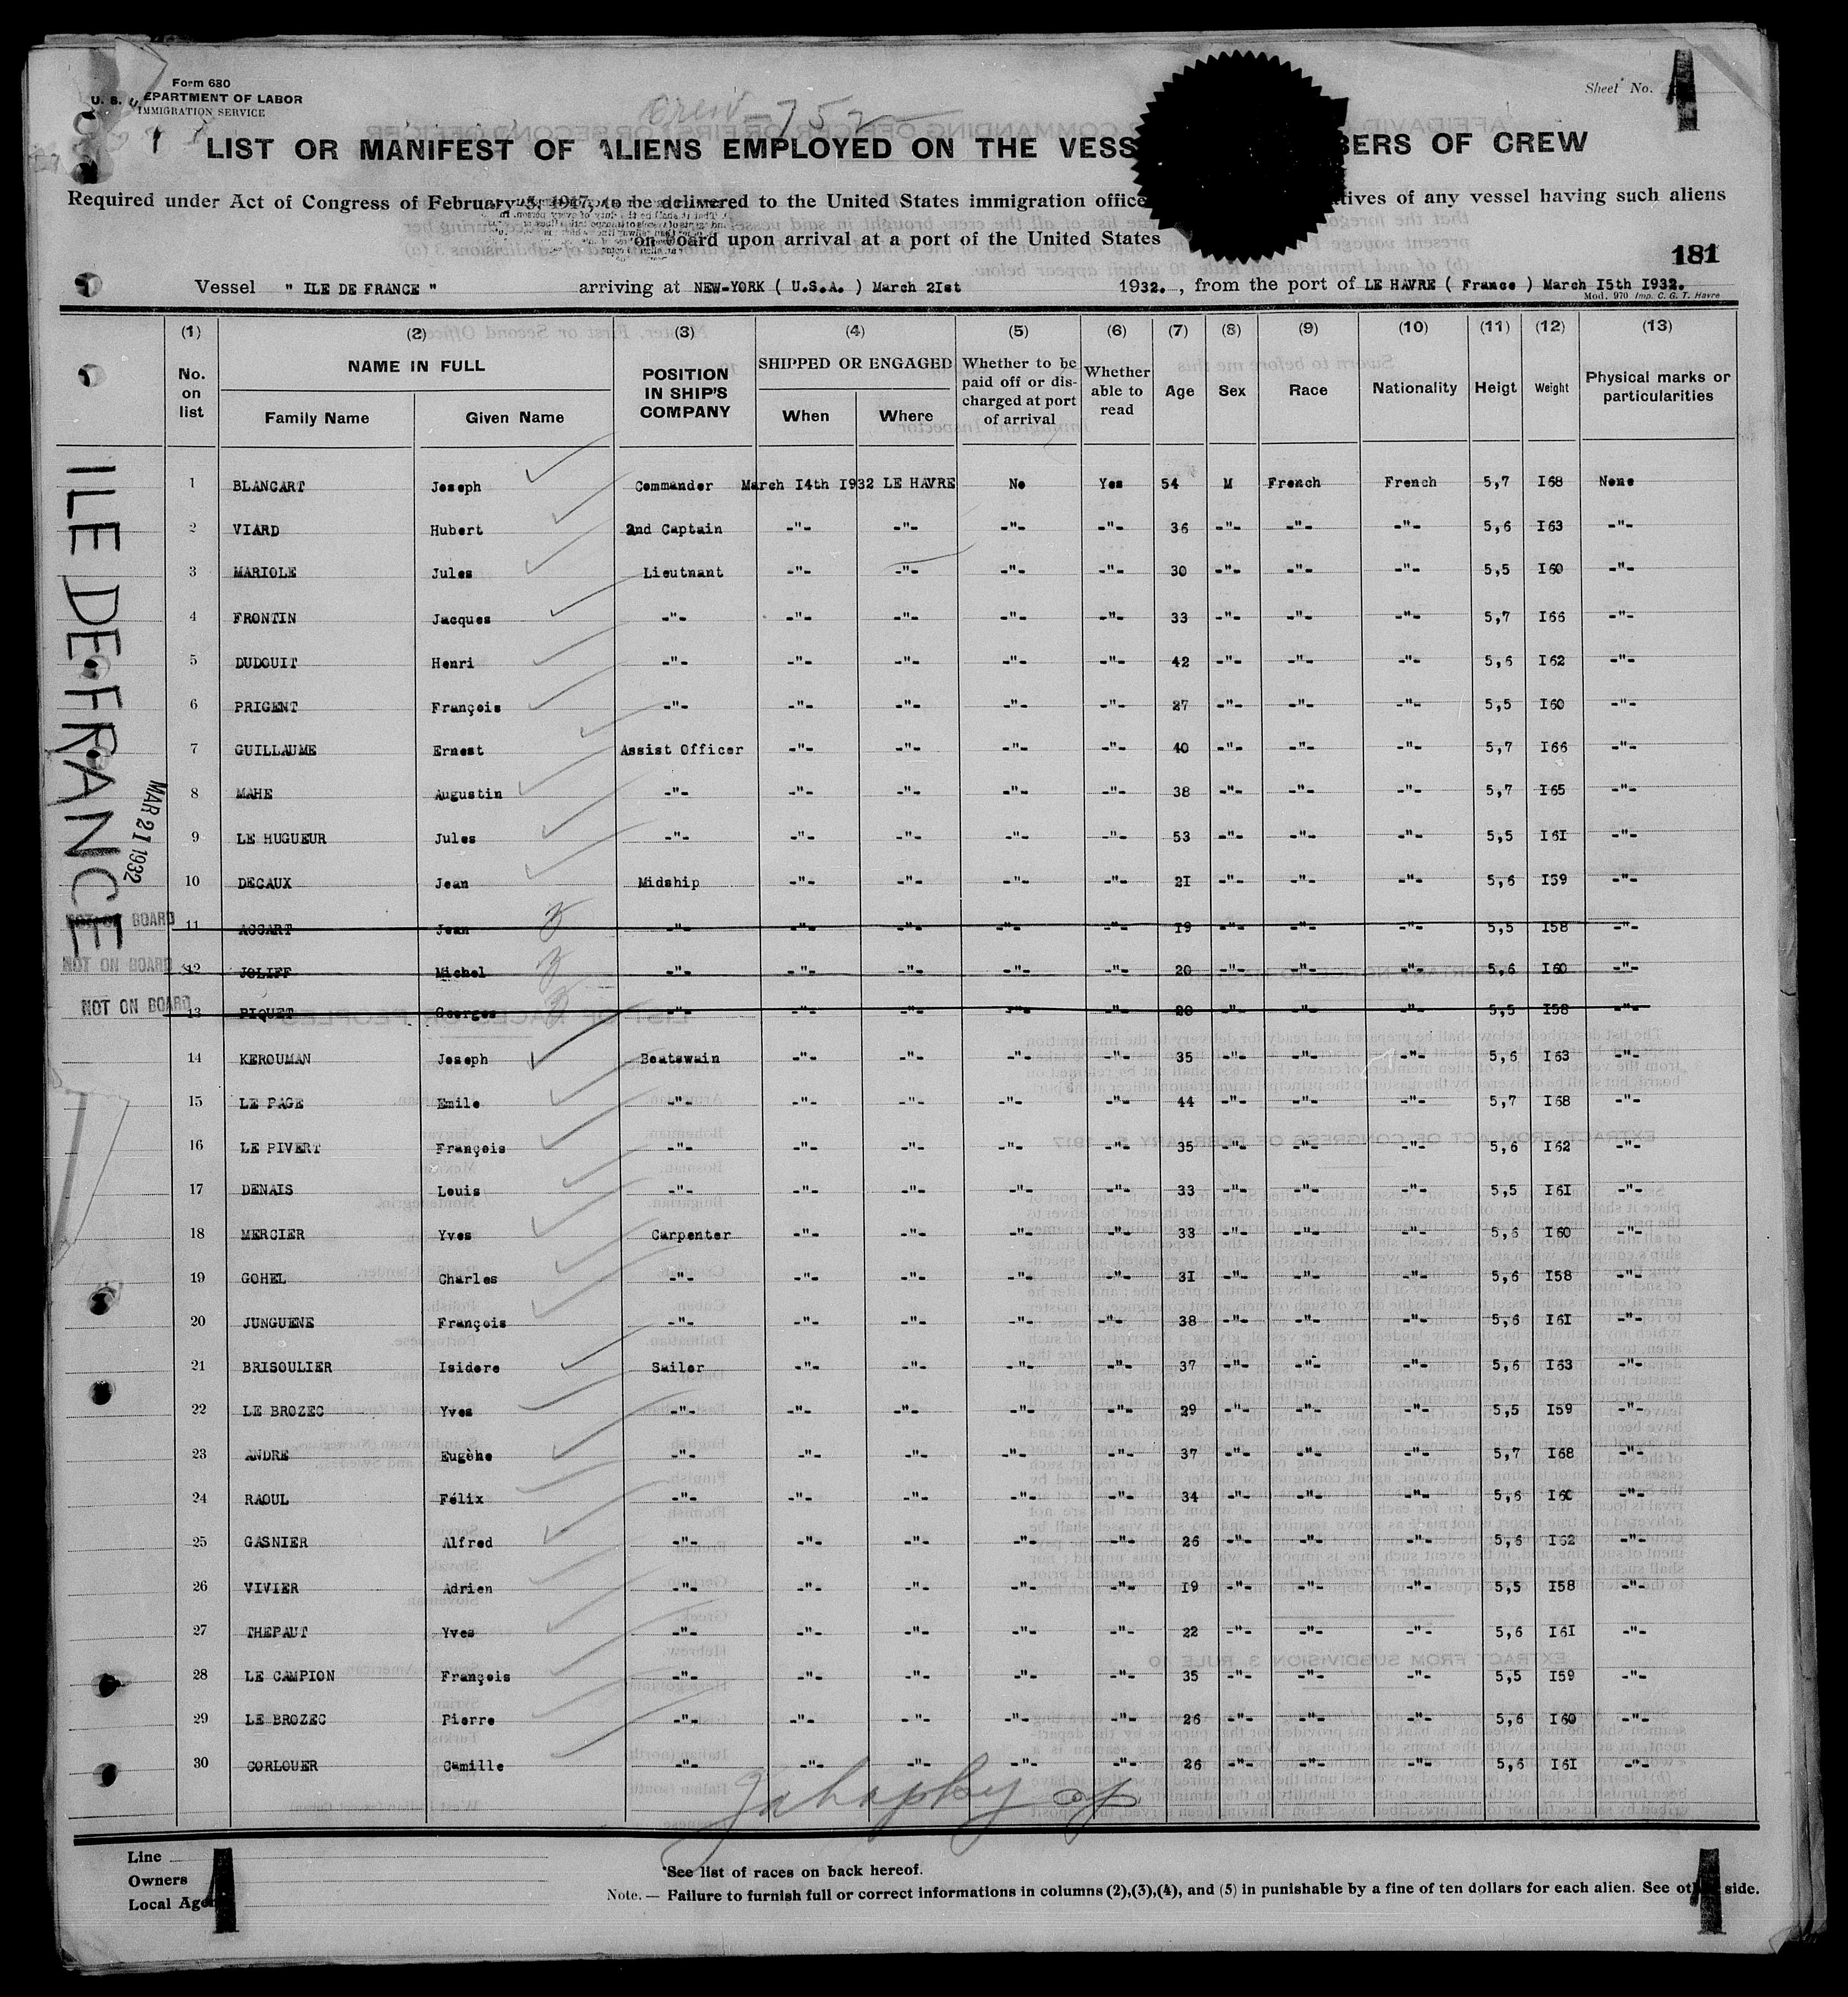 Form 680
U. S. DEPARTMENT OF LABOR
IMMIGRATION SERVICE
Sheet No.
Crew - 752
LIST OR MANIFEST OF ALIENS EMPLOYED ON THE VESS BERS OF CREW
Required under Act of Congress of February 5, 1917, to be delivered to the United States immigration office tatives of any vessel having such aliens
on board upon arrival at a port of the United States
181
Vessel " ILE DE FRANCE " arriving at NEW-YORK ( U.S.A. ) March 21st 1932. , from the port of LE HAVRE ( France ) March I5th I932.
Mod. 970 Imp. C. G. T. Havre
(1) (2) (3) (4) (5) (6) (7) (8) (9) (10) (11) (12) (13)
No. on list NAME IN FULL Family Name Given Name POSITION IN SHIP'S COMPANY SHIPPED OR ENGAGED When Where Whether to be paid off or dis- charged at port of arrival Whether able to read Age Sex Race Nationality Heigt Weight Physical marks or particularities
1 BLANCART Joseph Commander March I4th I932 LE HAVRE No Yes 54 M French French 5,7 I68 None
2 VIARD Hubert 2nd Captain -"- -"- -"- -"- 36 -"- -"- -"- 5,6 I63 -"-
3 MARIOLE Jules Lieutnant -"- -"- -"- -"- 30 -"- -"- -"- 5,5 I60 -"-
4 FRONTIN Jacques -"- -"- -"- -"- -"- 33 -"- -"- -"- 5,7 I66 -"-
5 DUDOUIT Henri -"- -"- -"- -"- -"- 42 -"- -"- -"- 5,6 I62 -"-
6 PRIGENT François -"- -"- -"- -"- -"- 27 -"- -"- -"- 5,5 I60 -"-
7 GUILLAUME Ernest Assist Officer -"- -"- -"- -"- 40 -"- -"- -"- 5,7 I66 -"-
8 MAHE Augustin -"- -"- -"- -"- -"- 38 -"- -"- -"- 5,7 I65 -"-
9 LE HUGUEUR Jules -"- -"- -"- -"- -"- 53 -"- -"- -"- 5,5 I6I -"-
10 DECAUX Jean Midship -"- -"- -"- -"- 2I -"- -"- -"- 5,6 I59 -"-
NOT ON BOARD 11 ACCART Jean -"- -"- -"- -"- -"- I9 -"- -"- -"- 5,5 I58 -"-
NOT ON BOARD 12 JOLIFF Michel -"- -"- -"- -"- -"- 20 -"- -"- -"- 5,6 I60 -"-
NOT ON BOARD 13 PIQUET Georges -"- -"- -"- -"- -"- 20 -"- -"- -"- 5,5 I58 -"-
14 KEROUMAN Joseph Boatswain -"- -"- -"- -"- 35 -"- -"- -"- 5,6 I63 -"-
15 LE PAGE Emile -"- -"- -"- -"- -"- 44 -"- -"- -"- 5,7 I68 -"-
16 LE PIVERT François -"- -"- -"- -"- -"- 35 -"- -"- -"- 5,6 I62 -"-
17 DENAIS Louis -"- -"- -"- -"- -"- 33 -"- -"- -"- 5,5 I6I -"-
18 MERCIER Yves Carpenter -"- -"- -"- -"- 33 -"- -"- -"- 5,6 I60 -"-
19 GOHEL Charles -"- -"- -"- -"- -"- 3I -"- -"- -"- 5,6 I58 -"-
20 JUNGUENE François -"- -"- -"- -"- -"- 38 -"- -"- -"- 5,6 I6I -"-
21 BRISOULIER Isidore Sailor -"- -"- -"- -"- 37 -"- -"- -"- 5,6 I63 -"-
22 LE BROZEC Yves -"- -"- -"- -"- -"- 29 -"- -"- -"- 5,5 I59 -"-
23 ANDRE Eugène -"- -"- -"- -"- -"- 37 -"- -"- -"- 5,7 I68 -"-
24 RAOUL Félix -"- -"- -"- -"- -"- 34 -"- -"- -"- 5,6 I60 -"-
25 GASNIER Alfred -"- -"- -"- -"- -"- 26 -"- -"- -"- 5,6 I62 -"-
26 VIVIER Adrien -"- -"- -"- -"- -"- I9 -"- -"- -"- 5,5 I58 -"-
27 THEPAUT Yves -"- -"- -"- -"- -"- 22 -"- -"- -"- 5,6 I6I -"-
28 LE CAMPION François -"- -"- -"- -"- -"- 35 -"- -"- -"- 5,5 I59 -"-
29 LE BROZEC Pierre -"- -"- -"- -"- -"- 26 -"- -"- -"- 5,6 I60 -"-
30 CORLOUER Camille -"- -"- -"- -"- -"- 26 -"- -"- -"- 5,6 I6I -"-
ILE DE FRANCE
MAR 21 1932
Line
Owners
Local Agen
*See list of races on back hereof.
Note. — Failure to furnish full or correct informations in columns (2),(3),(4), and (5) in punishable by a fine of ten dollars for each alien. See other side.